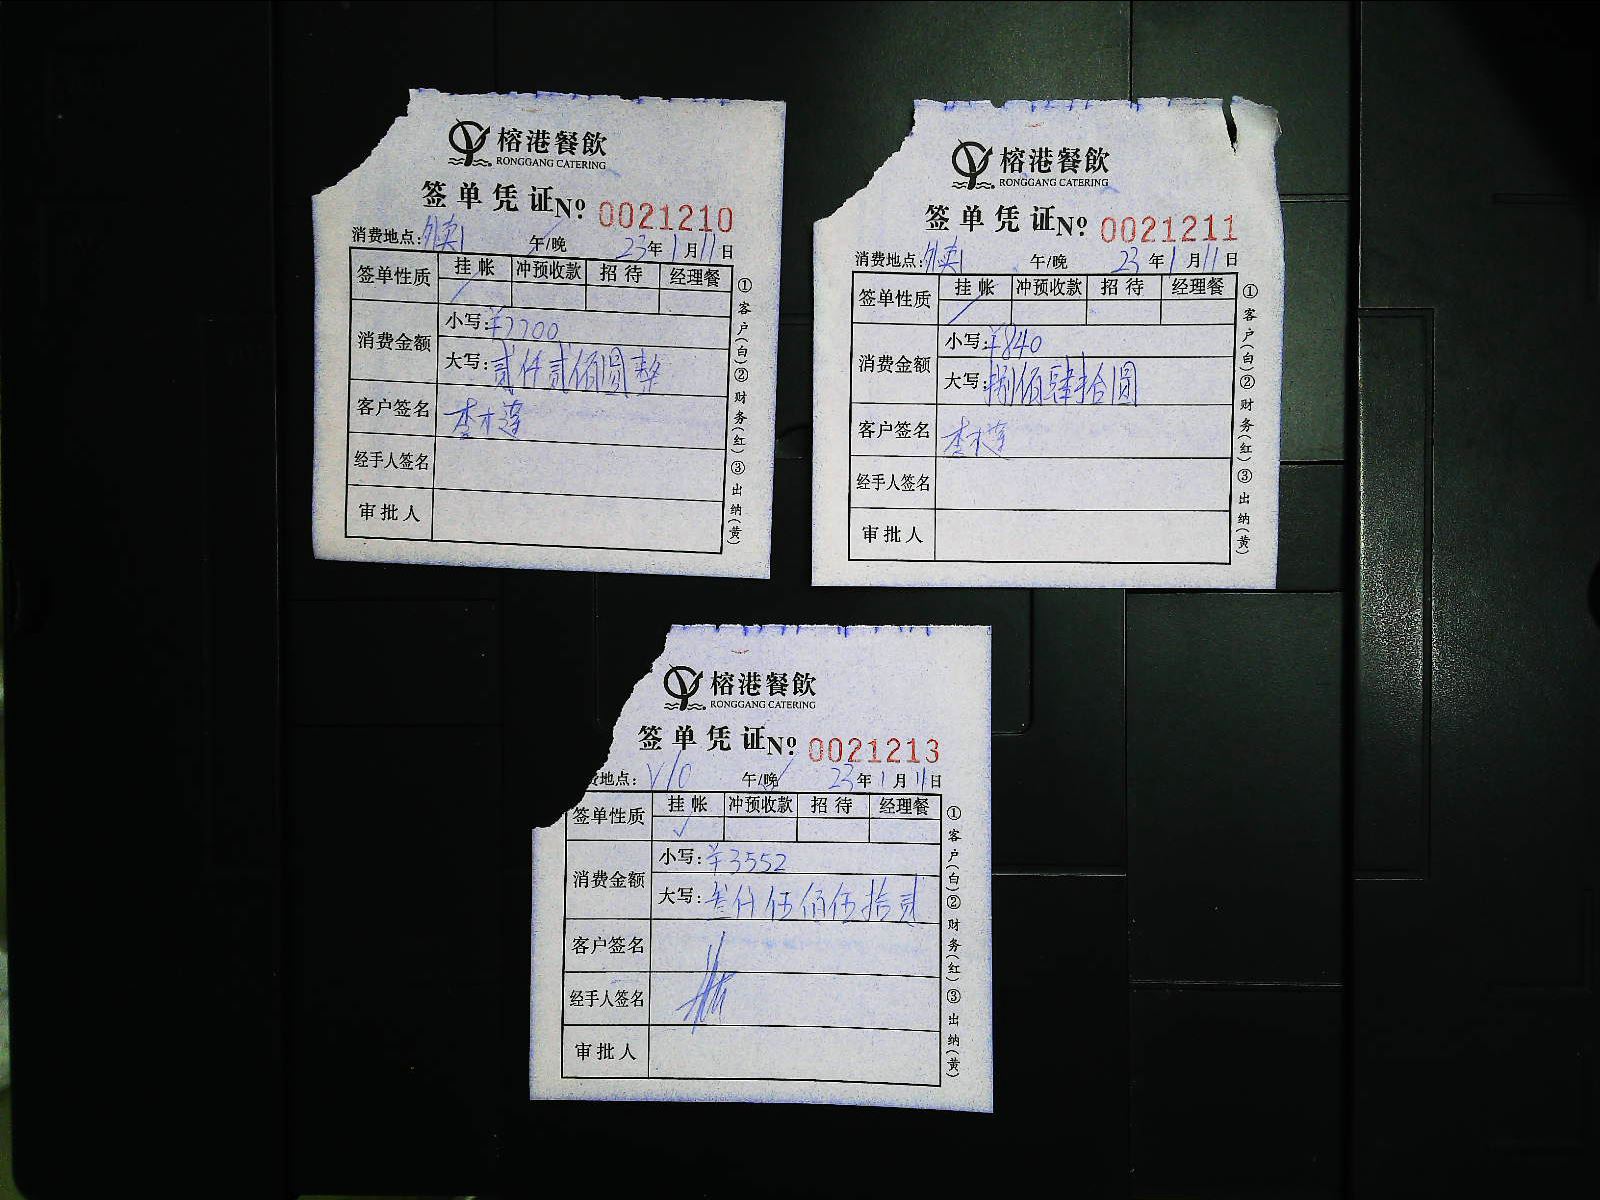 榕港餐飲
RONGGANG CATERING
签单凭证№ 0021210
消费地点:外卖1 午/晚 23年1月11日
签单性质 挂帐 冲预收款 招待 经理餐
消费金额 小写:¥2200
大写:贰仟贰佰圆整
客户签名 李木莲
经手人签名
审批人
①客户(白)②财务(红)③出纳(黄)
榕港餐飲
RONGGANG CATERING
签单凭证№ 0021211
消费地点:外卖1 午/晚 23年1月11日
签单性质 挂帐 冲预收款 招待 经理餐
消费金额 小写:¥840
大写:捌佰肆拾圆
客户签名 李木莲
经手人签名
审批人
①客户(白)②财务(红)③出纳(黄)
榕港餐飲
RONGGANG CATERING
签单凭证№ 0021213
费地点:V10 午/晚 23年1月11日
签单性质 挂帐 冲预收款 招待 经理餐
消费金额 小写:¥3552
大写:叁仟伍佰伍拾贰
客户签名
经手人签名
审批人
①客户(白)②财务(红)③出纳(黄)